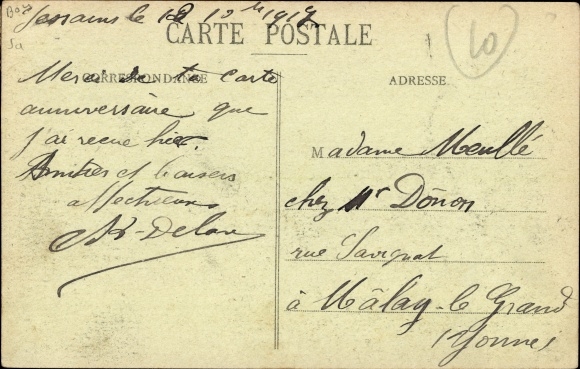 Jessains le 12 10bre 1917
10
CARTE POSTALE
CORRESPONDANCE
ADRESSE
Merci de ta carte
anniversaire que
j'ai recue hier.
Amitiés et baisers
affectueux
Madame Meullé
chez Mr Donon
rue Savignat
à Mâlay-le Grand
Yonne